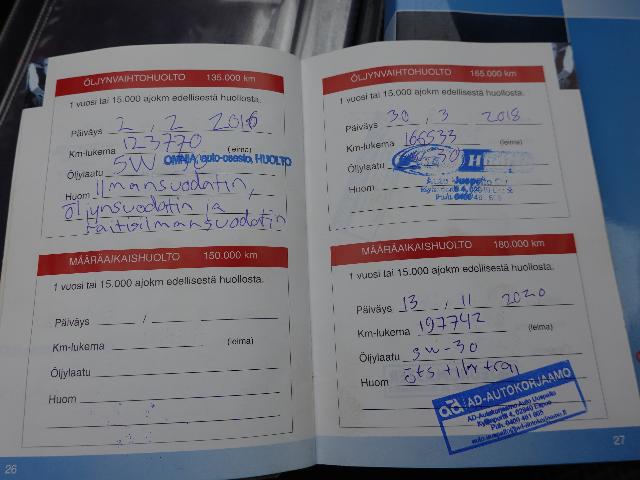 ÖLJYNVAIHTOHUOLTO 135.000 km
1 vuosi tai 15.000 ajokm edellisestä huollosta.
Päiväys 2 . 2 2016
Km-lukema 123770 (leima)
Öljylaatu 5W OMNIA, auto-osasto, HUOLTO
Huom Ilmansuodatin,
öljynsuodatin ja
raitisilmansuodatin
MÄÄRÄAIKAISHUOLTO 150.000 km
1 vuosi tai 15.000 ajokm edellisestä huollosta.
Päiväys /
Km-lukema (leima)
Öljylaatu
Huom
26
ÖLJYNVAIHTOHUOLTO 165.000 km
1 vuosi tai 15.000 ajokm edellisestä huollosta.
Päiväys 30 . 3 2018
Km-lukema 165533 (leima)
Öljylaatu H
Huom
MÄÄRÄAIKAISHUOLTO 180.000 km
1 vuosi tai 15.000 ajokm edellisestä huollosta.
Päiväys 13 . 11 2020
Km-lukema 197742 (leima)
Öljylaatu 5W-30
Huom öts + ilm + rai
ad AD-AUTOKORJAAMO
AD-Autokorjaamo Auto Uuspelto
Puh. 0400 461 605
27